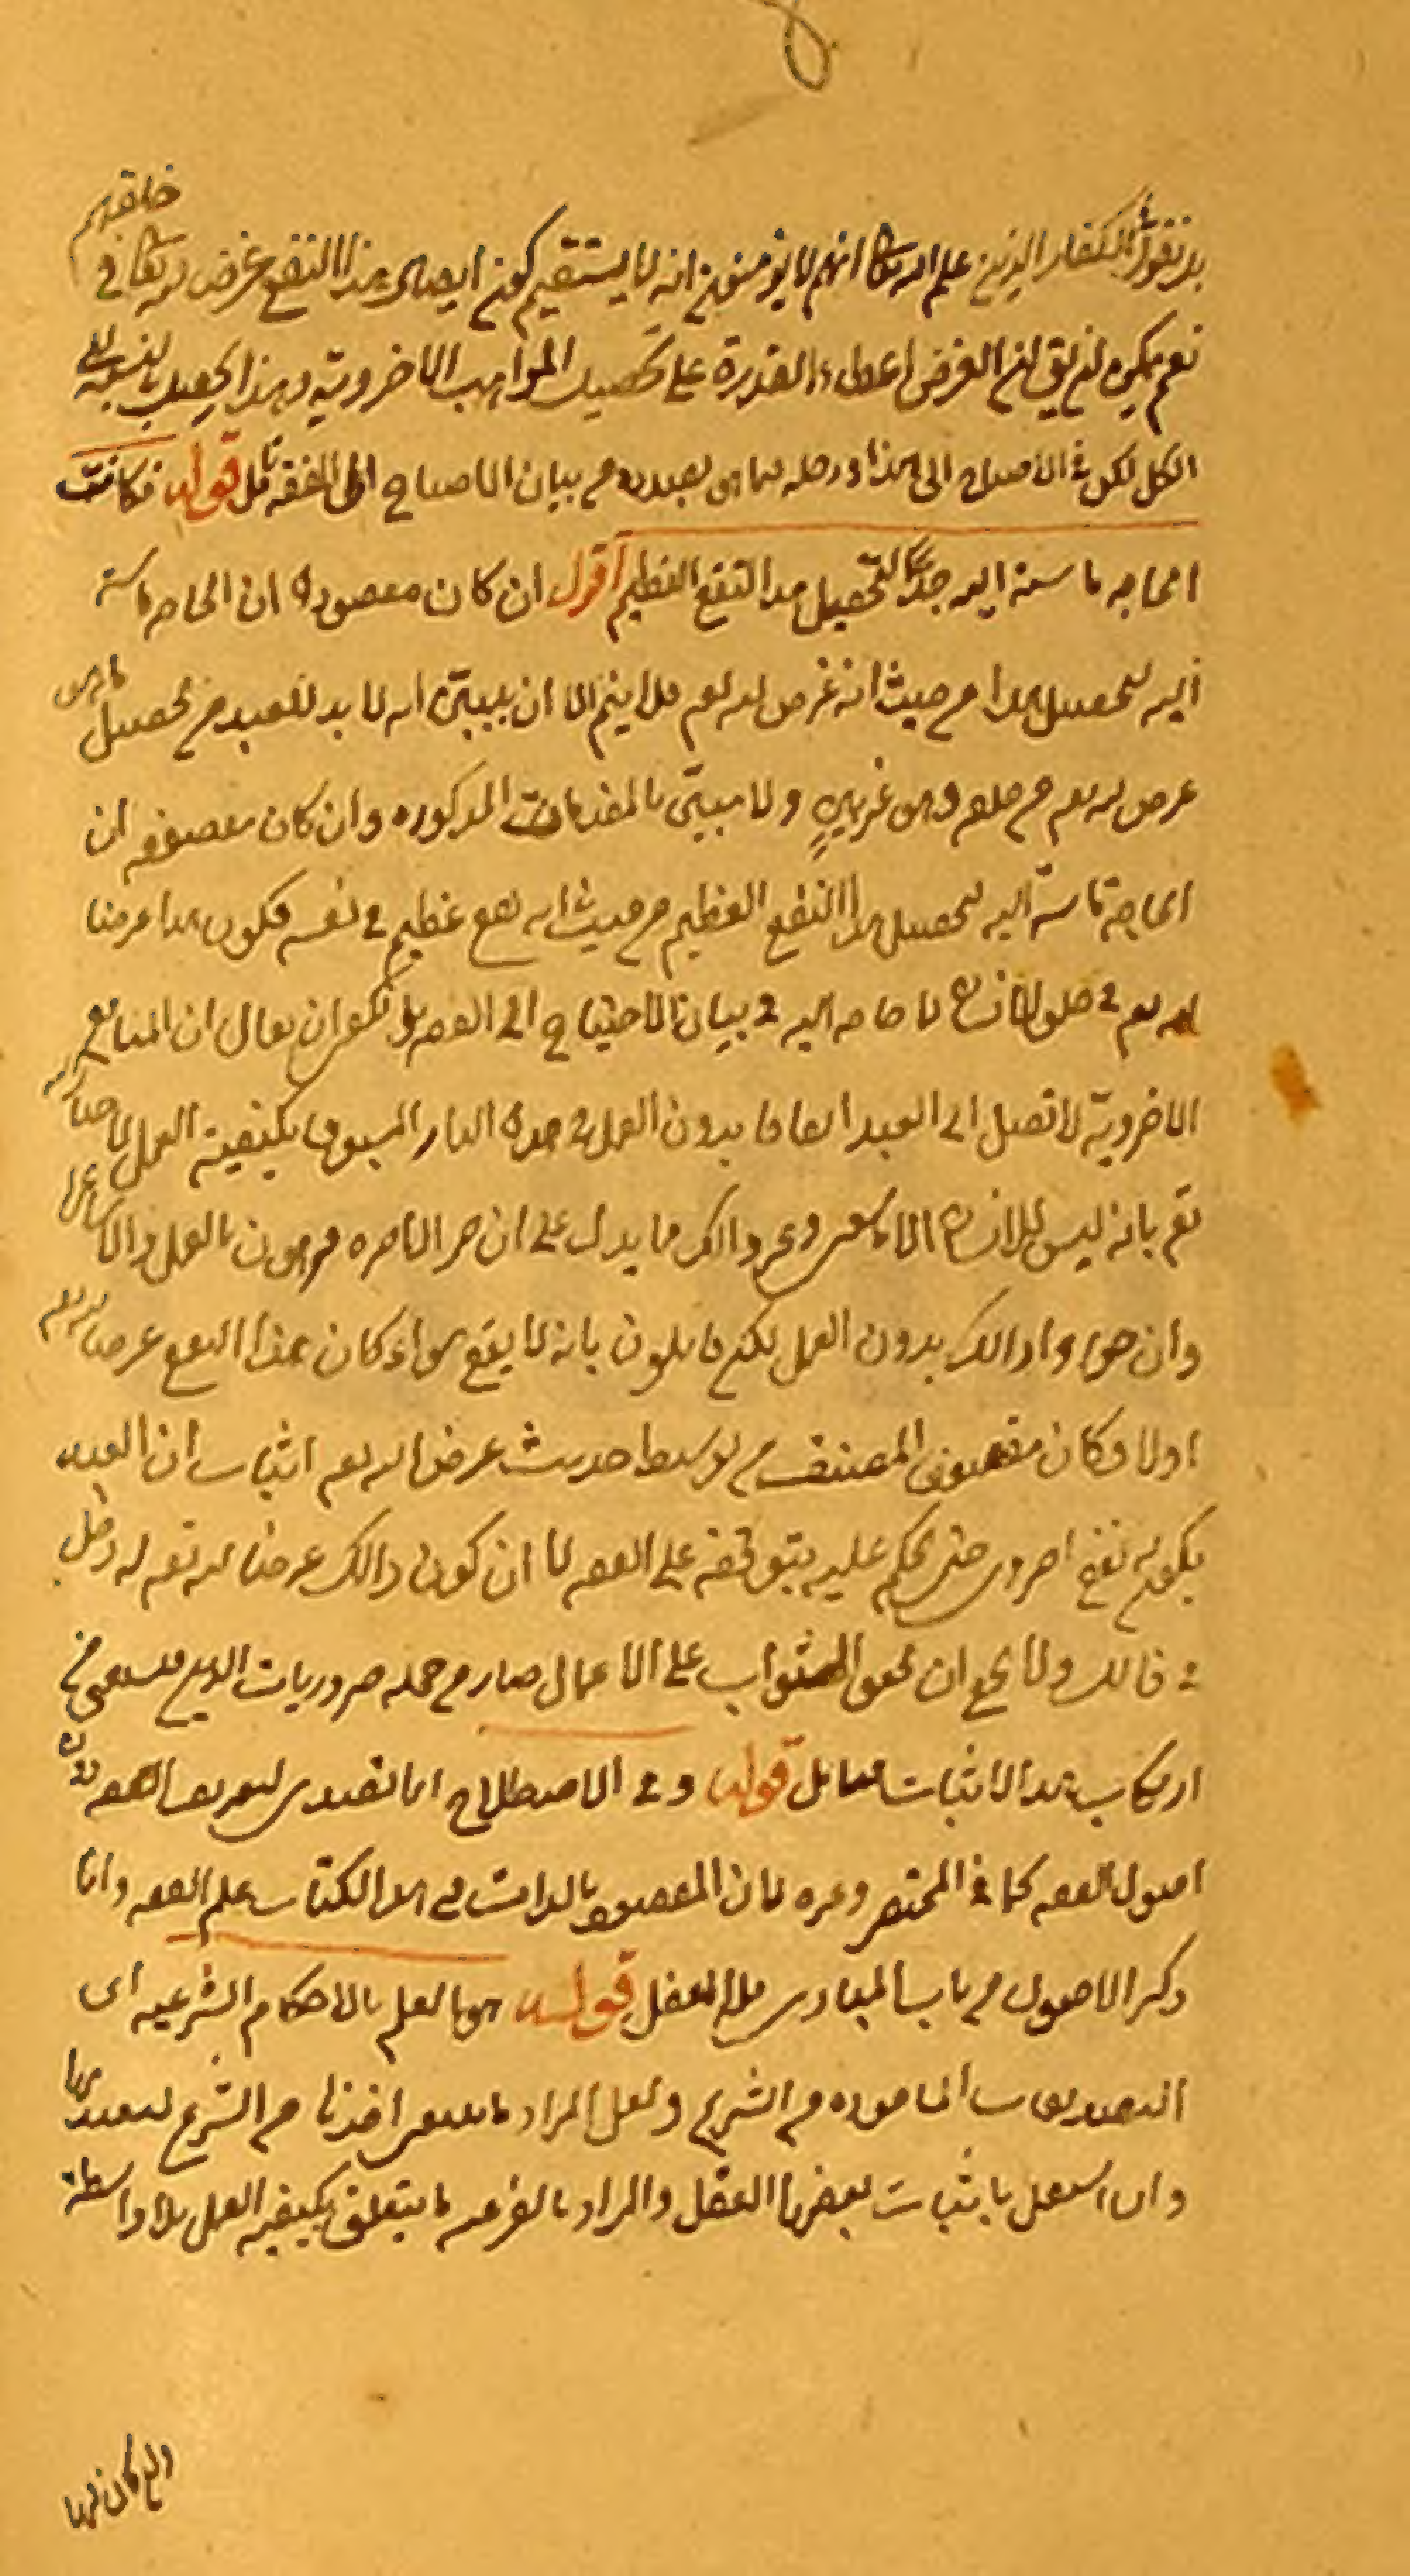 خلقهم
بل نقول الكفار الذين علم الله تعالى انهم لا يؤمنون انه لا يستقيم كون ايصال هذا النفع غرض له تعالى في
نعم يمكن ان يق ان الغرض اعطاء القدرة على تحصيل المواهب الاخروية وهذا يحصل بالنسبة الى
الكل لكن الاحتياج الى هذا ودخله بما هو بصدده من بيان الاحتياج الى الفقه تأمل قوله فكانت
الحاجه ماسة اليه جدا لتحصيل هذا النفع العظيم اقول ان كان مقصوده ان الحاجه ماسة
اليه لتحصيل هذا من حيث انه غرض له تعم فلا يتم الا ان يبيّن انه لا بد للعبد من تحصيل ما هو
غرض له تعم من خلقه وهو غير بين ولا مبيّن بالمقدمات المذكوره وان كان مقصوده ان
الحاجة ماسّة اليه لتحصيل هذا النفع العظيم من حيث انه نفع عظيم في نفسه فكون هذا غرضا
له تعم في خلق الانسان لا حاجه اليه في بيان الاحتياج الى الفقه بل يكفي ان يقال ان المنافع
الاخرويّة لا تصل الى العبد اتفاقا بدون العمل في هذه الدار المسبوق بكيفية العمل لاخباره
تع بانه ليس للانسان الا ما سعى وغير ذالك مما يدل على ان خير الاخره مرهون بالعمل والاشاعرة
وان جوزوا ذالك بدون العمل لكن قائلون بانه لا يقع سواء كان هذا النفع غرضا له تعم
اولا فكان مقصود المصنف من توسيط حديث غرض الله تعم اثبات ان العبد
يكون له نفع اخروى حتى يحكم عليه بتوقفه على الفقه لا ان كون ذالك غرضا له تعم له دخل
في ذالك ولا يخفى ان تحقق الثواب على الاعمال صار من جمله ضروريات الدين فيستغنى عن
ارتكاب هذا الاثبات فتأمل قوله وفى الاصطلاح انما تصدى لتعريف الفقه دون
اصول الفقه كما في المختصر وغيره لان المقصود بالذات في هذا الكتاب علم الفقه وانما
ذكر الاصول من باب المبادى فلا تغفل قوله هو العلم بالاحكام الشرعيه اى
التصديقات الماخوذه من الشرع ولعل المراد ما ينبغى اخذها من الشرع ليعتد بها
وان استقل باثبات بعضها العقل والمراد بالفرعيه ما يتعلق بكيفيه العمل بلا واسطة